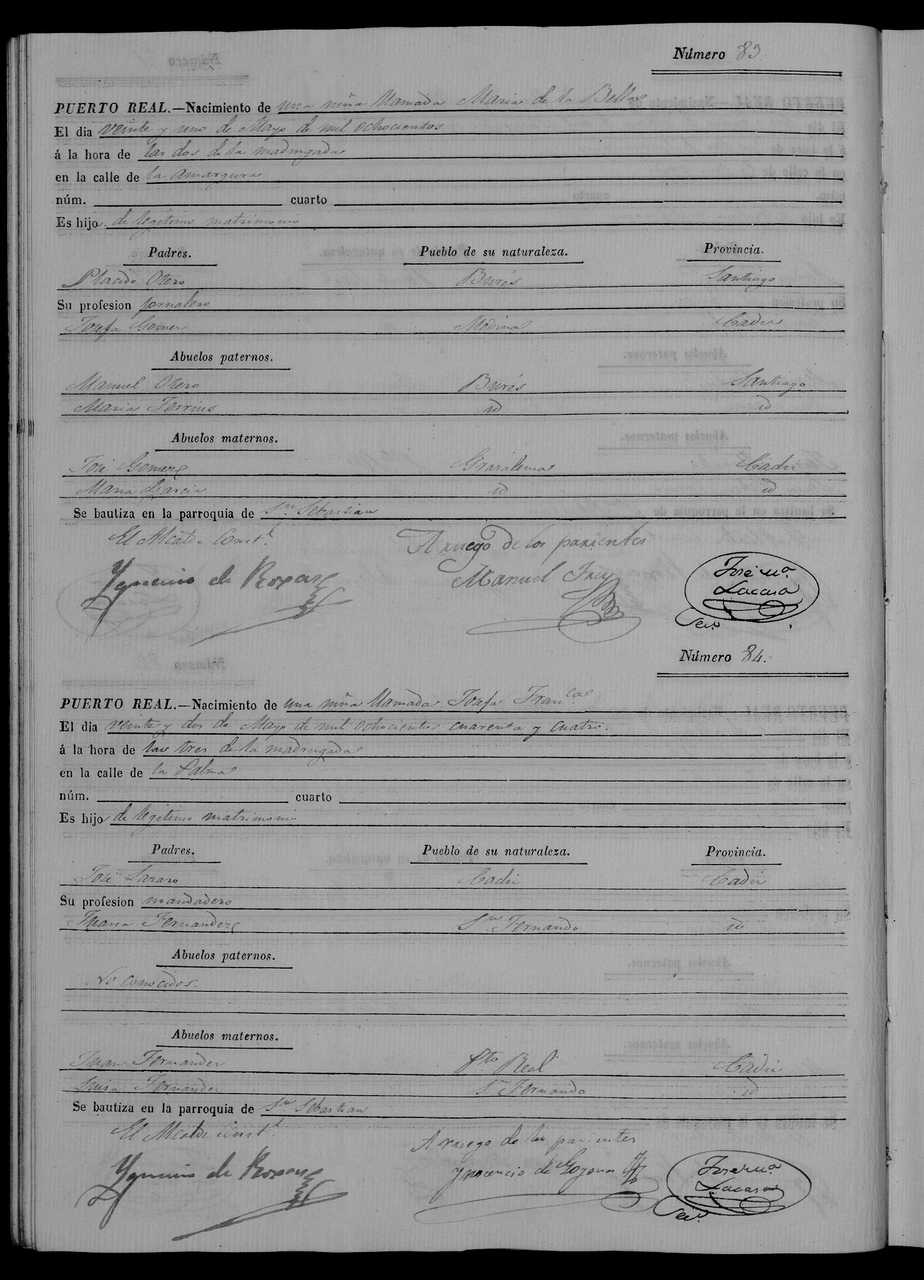 Número 83
PUERTO REAL.—Nacimiento de una niña llamada Maria de la
El dia veinte y uno de Mayo de mil ochocientos
á la hora de las dos de la madrugada
en la calle de la Amargura
núm. cuarto
Es hijo de legitimo matrimonio
Padres. Pueblo de su naturaleza. Provincia.
Placido Otero Burés Santiago
Su profesion jornalero
Josefa Gomez Medina Cadiz
Abuelos paternos.
Manuel Otero Burés Santiago
Maria id id
Abuelos maternos.
José Gomez Cadiz
Maria Garcia id id
Se bautiza en la parroquia de Sn Sebastian
El Alcalde Const.l A ruego de los parientes
Ygnacio de Manuel
José Ma.
Lacasa
Sec.o
Número 84.
PUERTO REAL.—Nacimiento de una niña llamada Josefa Fran.ca
El dia veinte y dos de Mayo de mil ochocientos cuarenta y cuatro.
á la hora de las tres de la madrugada
en la calle de la Palma
núm. cuarto
Es hijo de legitimo matrimonio
Padres. Pueblo de su naturaleza. Provincia.
José Cadiz Cadiz
Su profesion mandadero
Maria Fernandez Sn Fernando id
Abuelos paternos.
No conocidos.
Abuelos maternos.
Juan Fernandez Pto Real Cadiz
Fernandez Sn Fernando id
Se bautiza en la parroquia de Sn Sebastian
El Alcalde Const.l A ruego de los parientes
Ygnacio de Ynocencio de
José Ma.
Lacasa
Sec.o